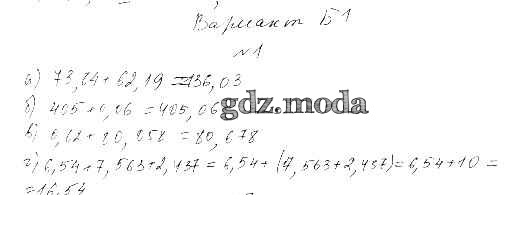 Вариант Б1
№1
а) 73,84+62,19=136,03
б) 405+0,06=405,06
gdz.moda
в) 0,62+80,058=80,678
г) 6,54+7,563+2,437=6,54+(7,563+2,437)=6,54+10=
=16,54